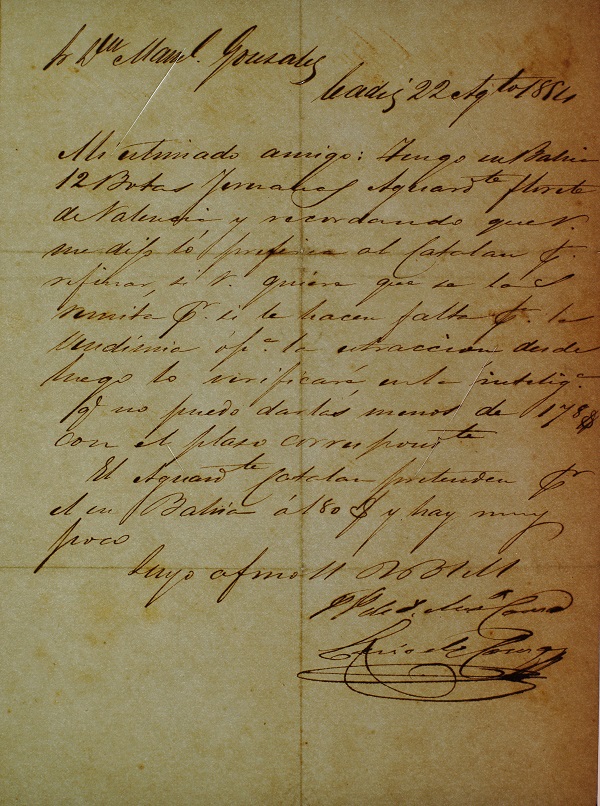 Sr Dn Manl. Gonzalez
Cadiz 22 Agto 1854
Mi estimado amigo: Tengo en Bahia
12 Botas Aguardte
de Valencia y recordando que V.
me dijo lo preferia al Catalan pa.
refinar, si V. quiere que se las
remita pr. si le hacen falta pa. la
vendimia ó pa. la estraccion desde
luego lo verificaré en la intelig.a
q no puedo darlas menos de 178 $
con el plazo correspondte
El Aguardte Catalan pretenden pr
el en Bahia á 180 $ y hay muy
poco
Suyo afmo